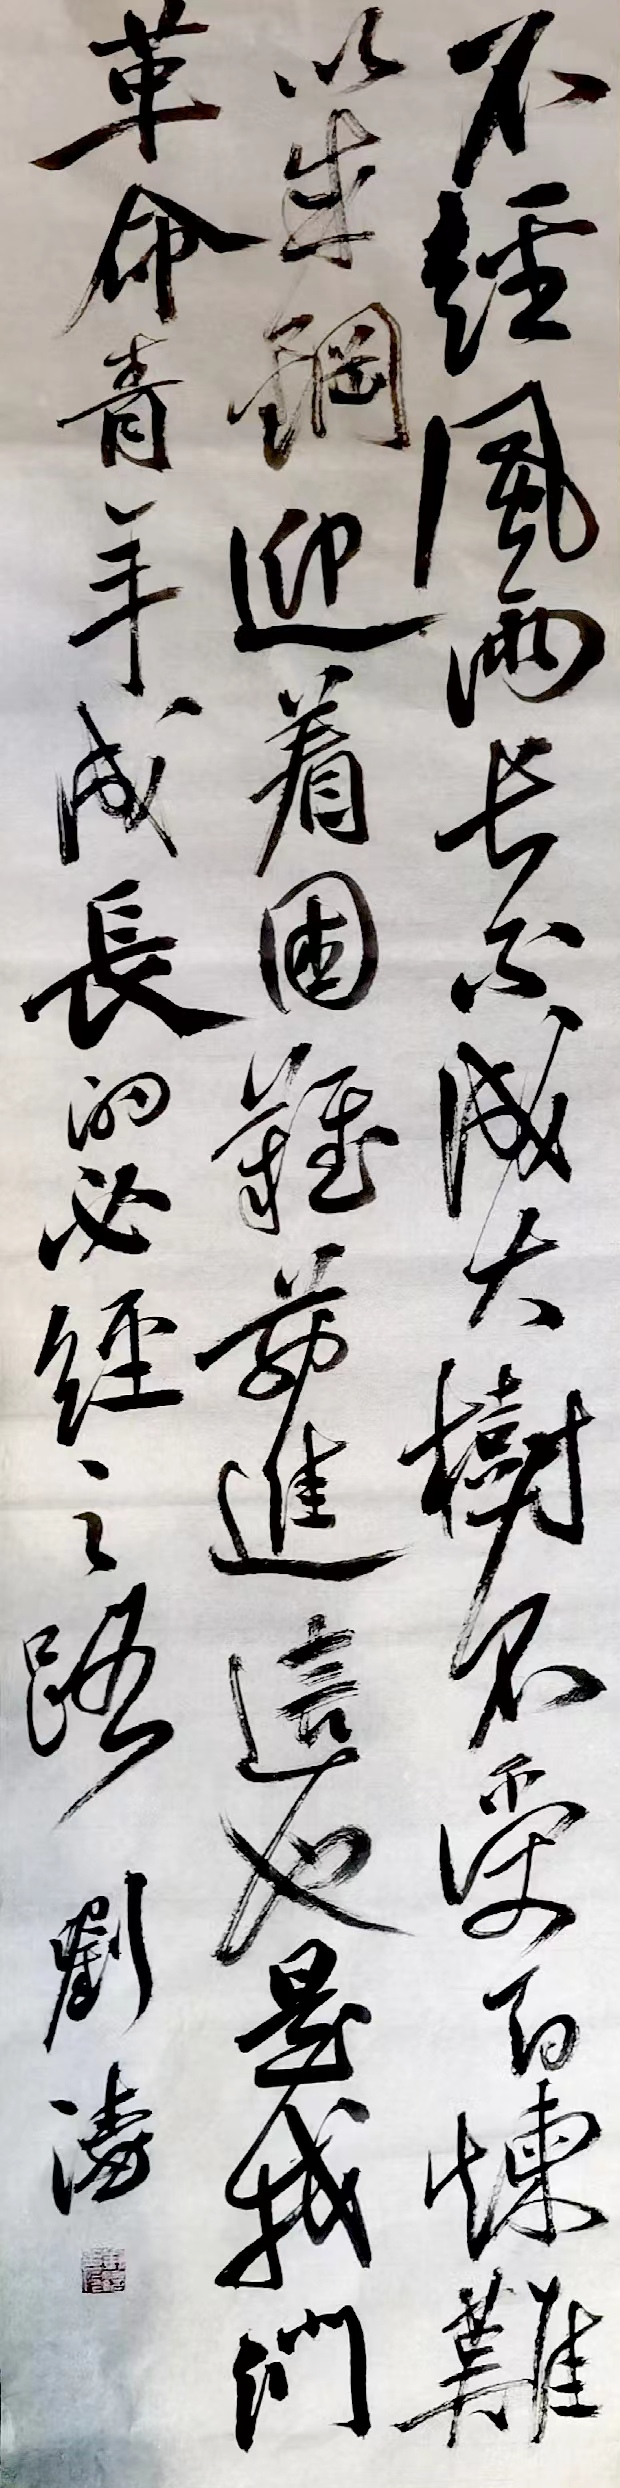 不經風雨长不成大樹不受百煉難
以成鋼迎着困難前進這也是我們
革命青年成長的必經之路
劉濤